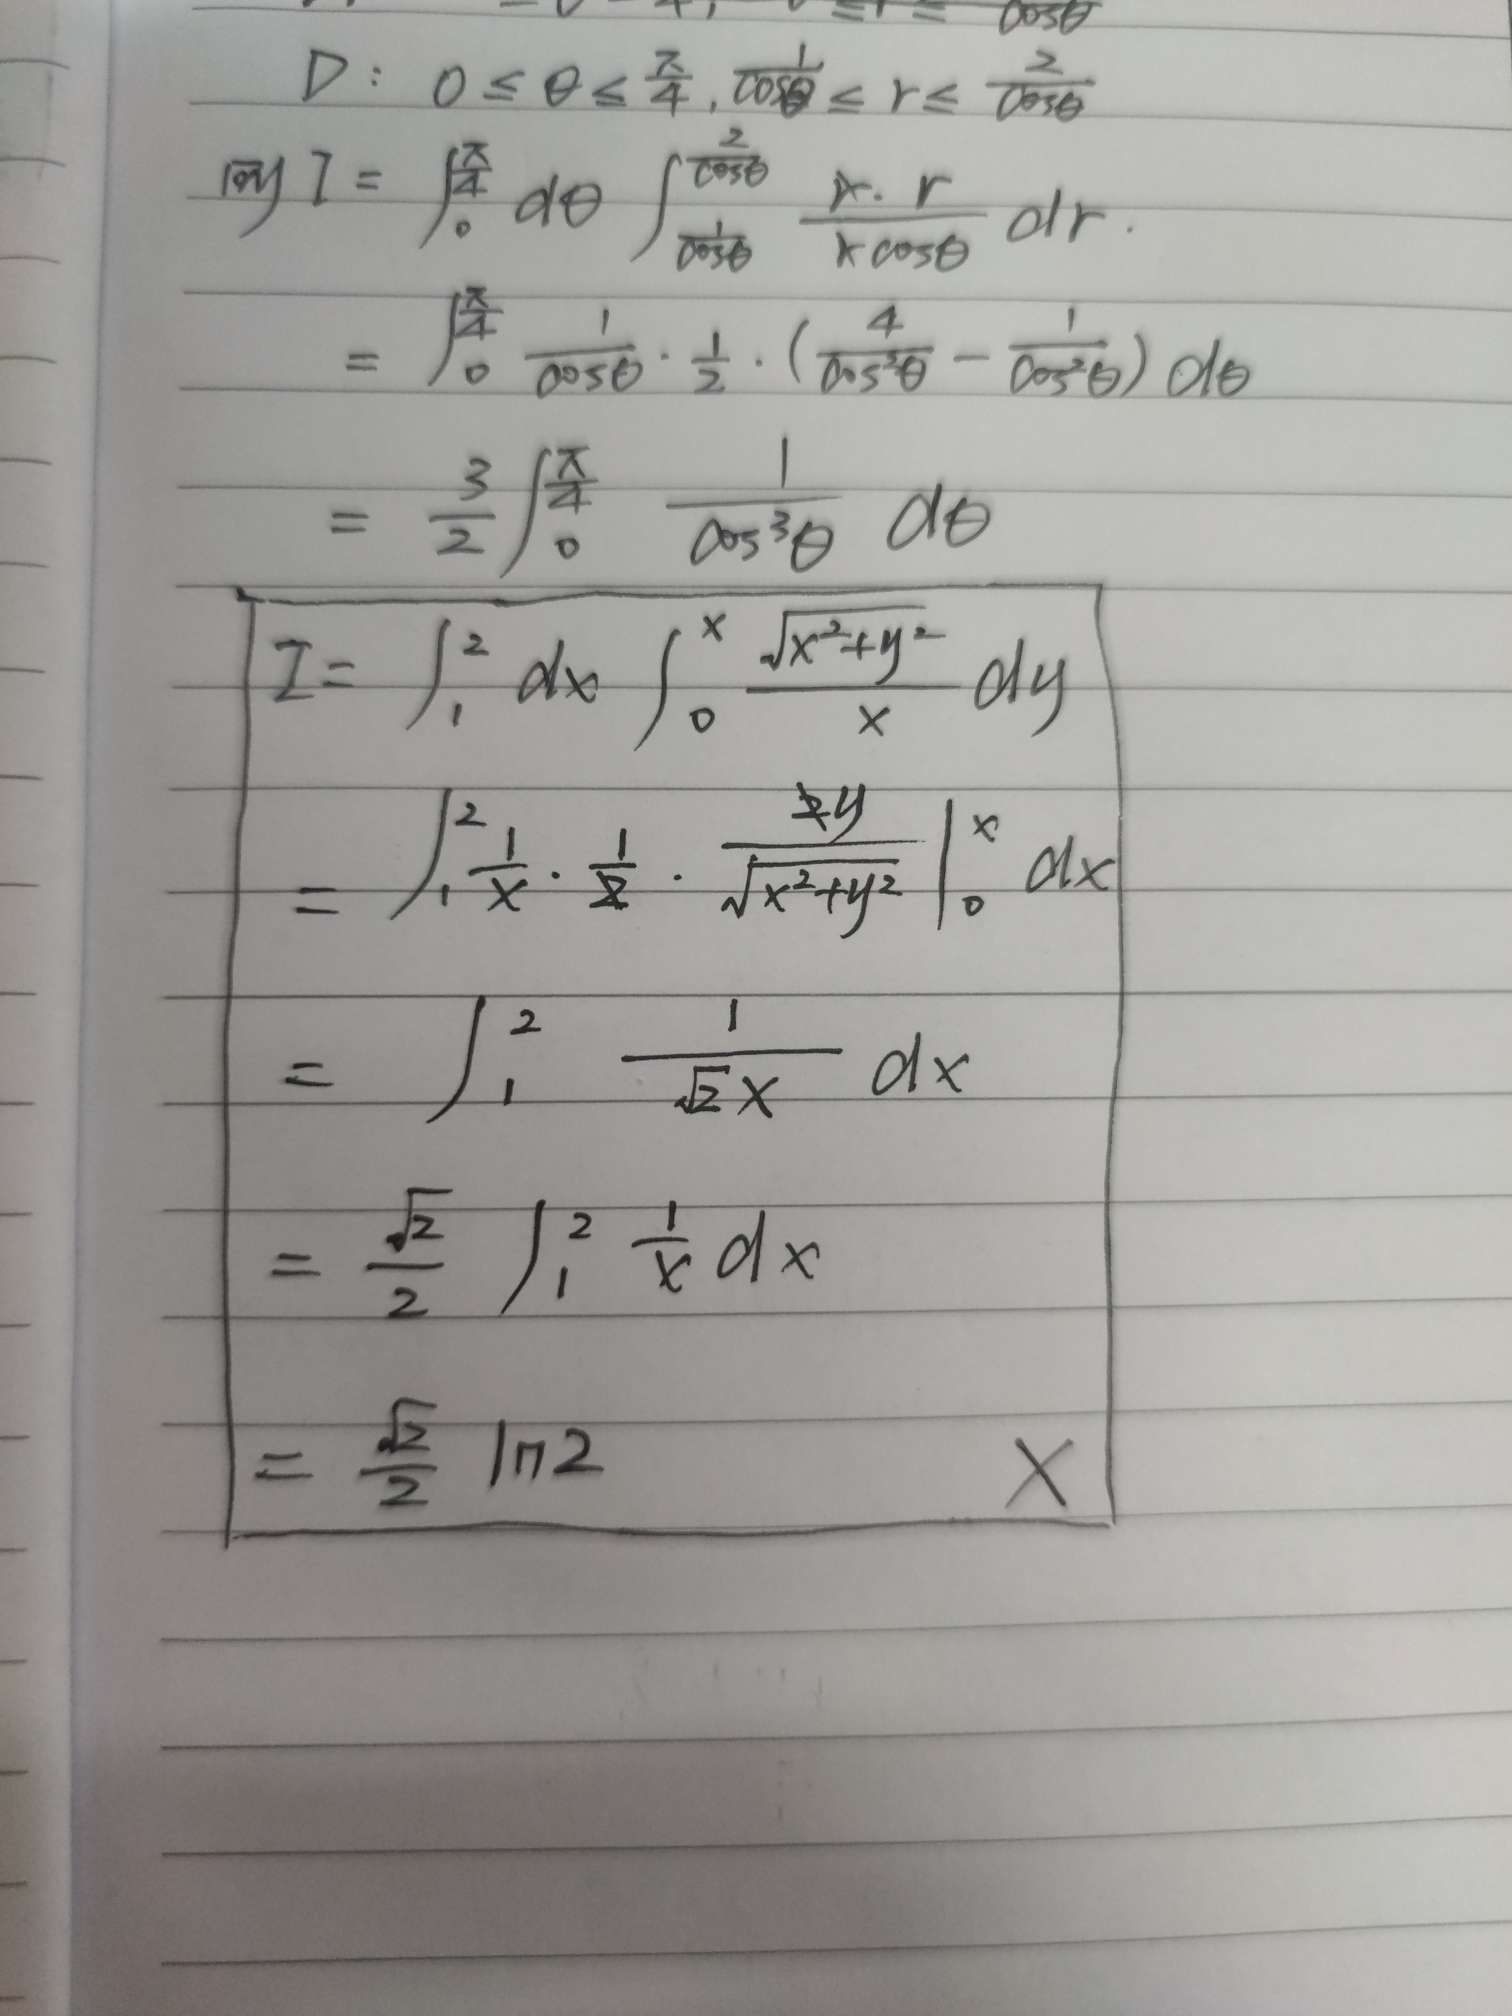 cosθ
D: 0 ≤ θ ≤ π/4, 1/cosθ ≤ r ≤ 2/cosθ
I = ∫_0^{π/4} dθ ∫_{1/cosθ}^{2/cosθ} (r·r)/(r cosθ) dr.
= ∫_0^{π/4} 1/cosθ · 1/2 · (4/cos²θ − 1/cos²θ) dθ
= 3/2 ∫_0^{π/4} 1/cos³θ dθ
I = ∫_1^2 dx ∫_0^x √(x²+y²)/x dy
= ∫_1^2 1/x · 1/2 · 2y/√(x²+y²) |_0^x dx
= ∫_1^2 1/(√2 x) dx
= √2/2 ∫_1^2 1/x dx
= √2/2 ln2 X